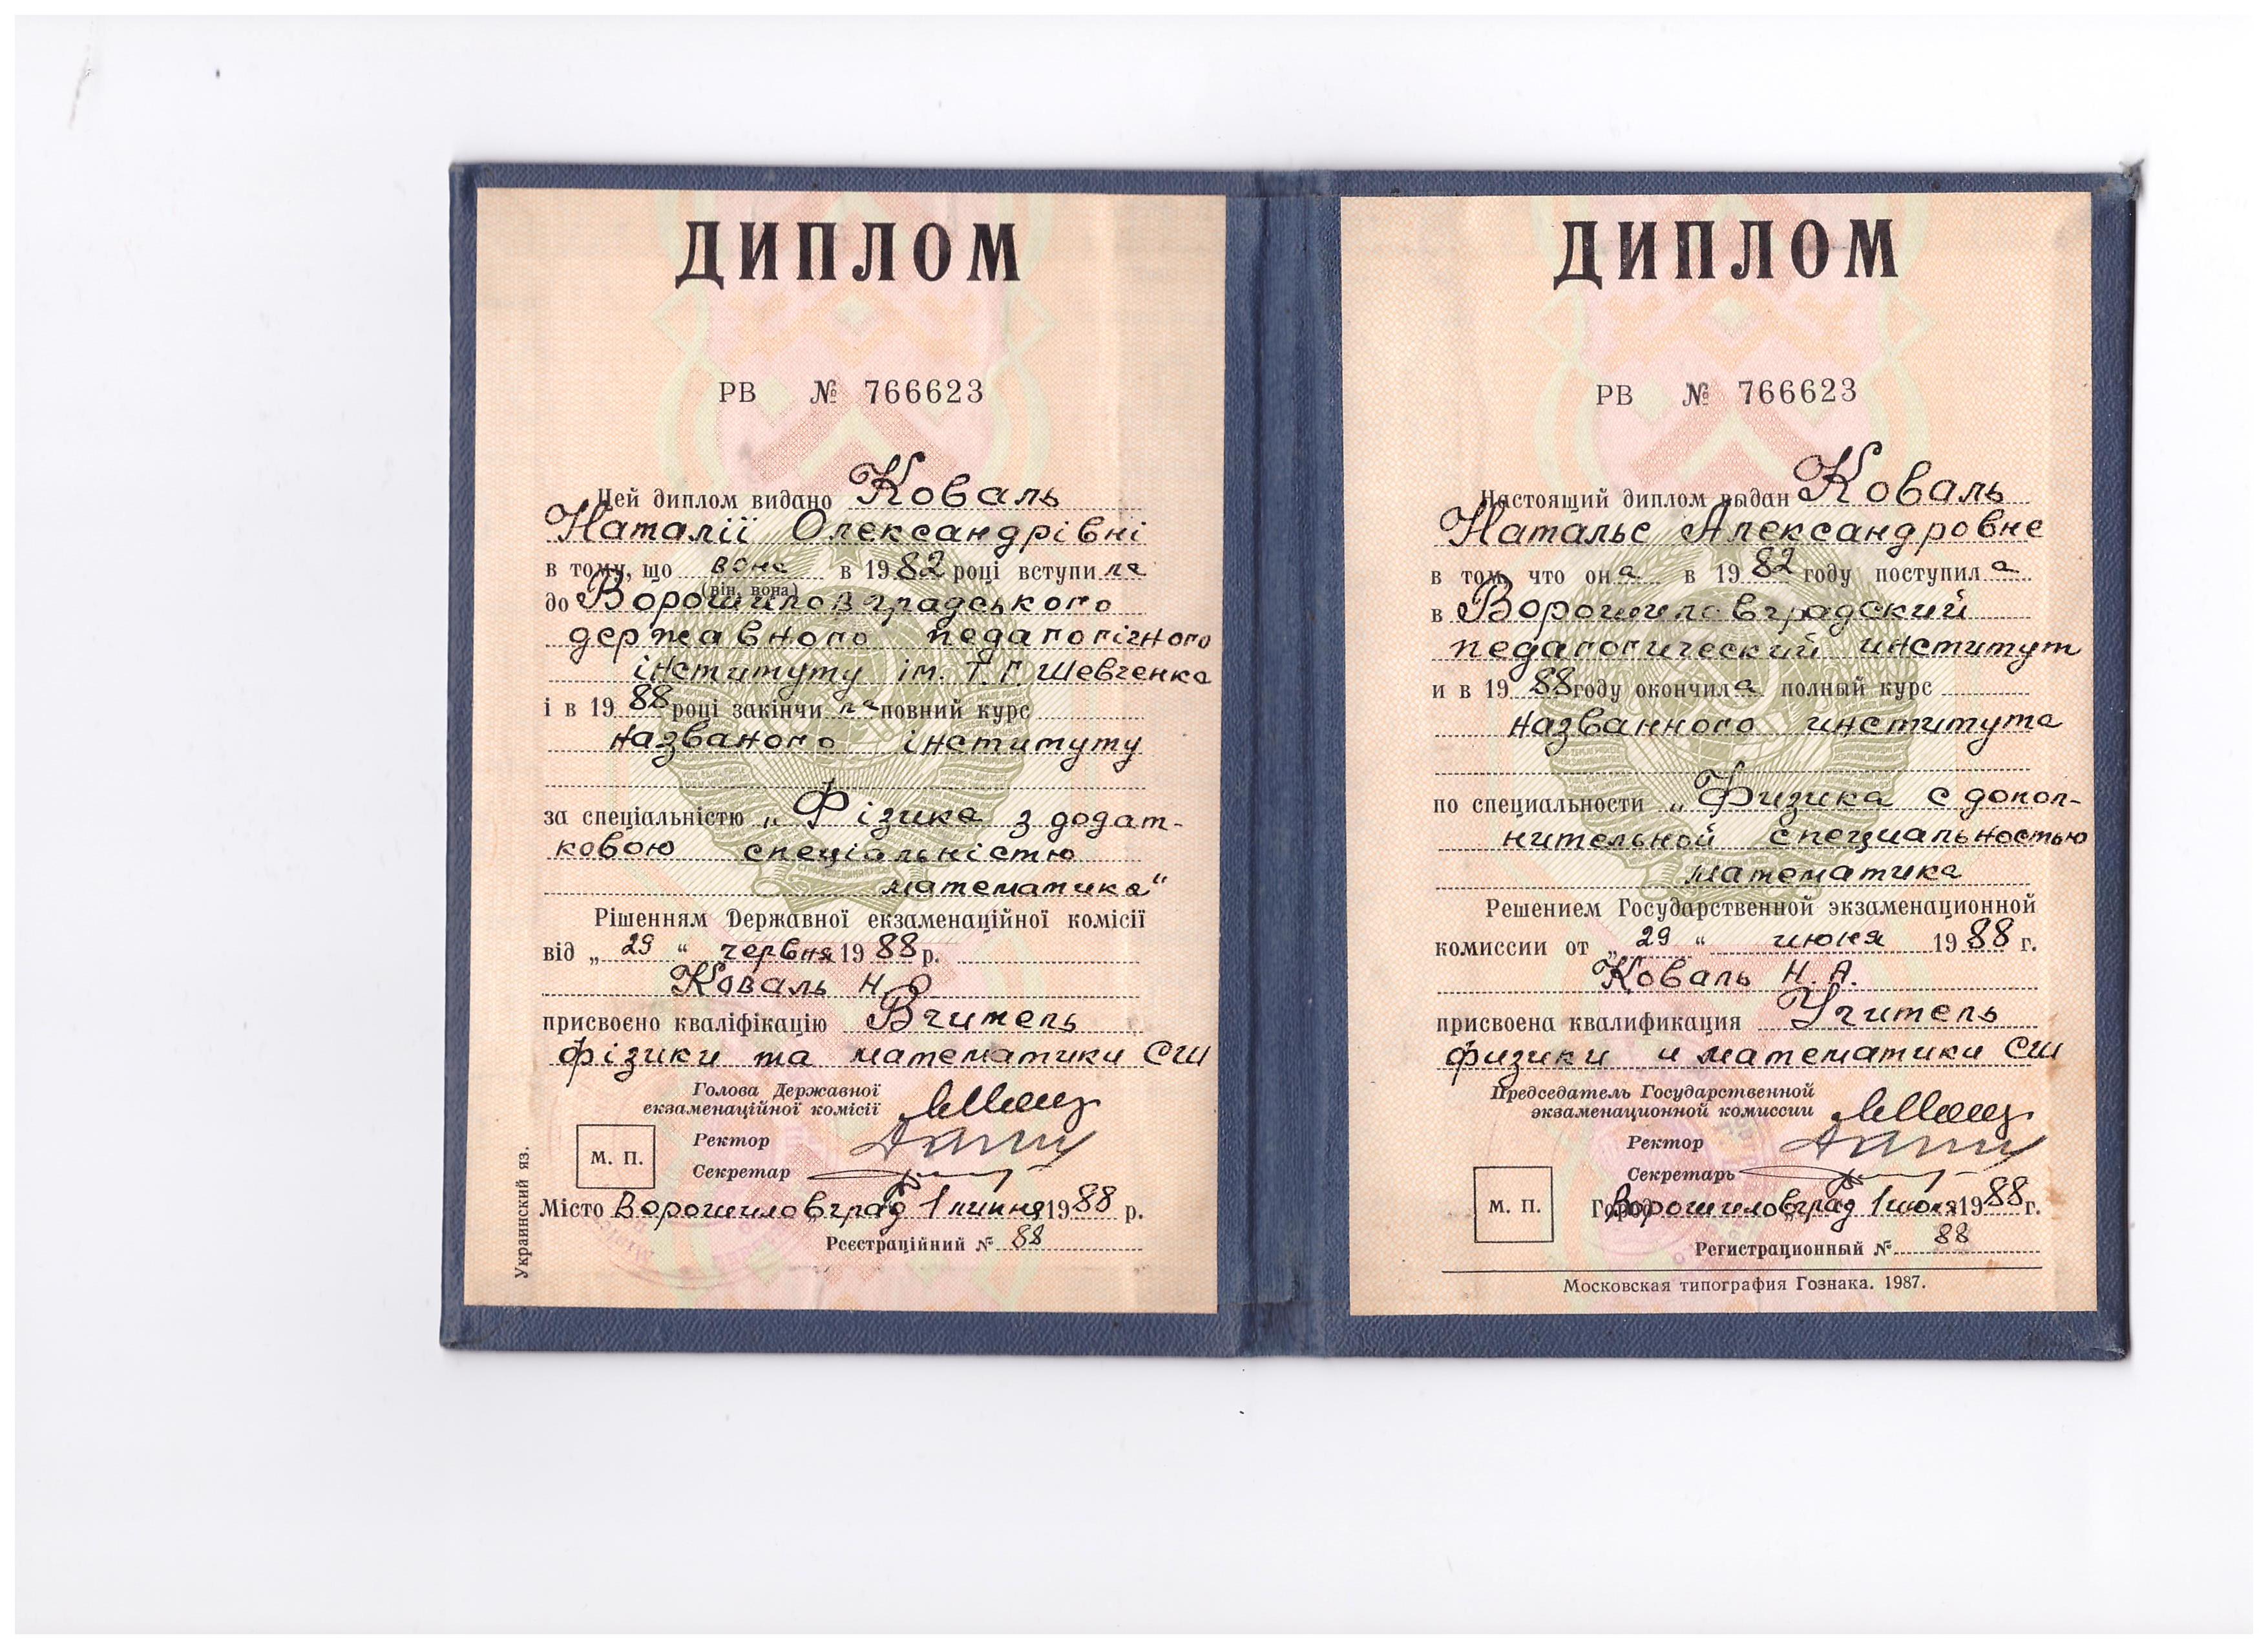 ДИПЛОМ
РВ № 766623
Цей диплом видано Коваль
Наталії Олександрівні
в тому, що вона в 1982 році вступила
(він, вона)
до Ворошиловградського
державного педагогічного
інституту ім. Т.Г. Шевченка
і в 1988 році закінчила повний курс
названого інституту
за спеціальністю „Фізика з додат-
ковою спеціальністю
математика“
Рішенням Державної екзаменаційної комісії
від „29“ червня 1988 р.
Коваль Н.О
присвоєно кваліфікацію Вчитель
фізики та математики СШ
Голова Державної
екзаменаційної комісії
Ректор
М. П.
Секретар
Місто Ворошиловград 1 липня 1988 р.
Реєстраційний № 88
Украинский яз.
ДИПЛОМ
РВ № 766623
Настоящий диплом выдан Коваль
Наталье Александровне
в том, что она в 1982 году поступила
в Ворошиловградский
педагогический институт
и в 1988 году окончила полный курс
названного института
по специальности „Физика с допол-
нительной специальностью
математика
Решением Государственной экзаменационной
комиссии от „29“ июня 1988 г.
Коваль Н.А.
присвоена квалификация Учитель
физики и математики СШ
Председатель Государственной
экзаменационной комиссии
Ректор
Секретарь
М. П.
Город Ворошиловград 1 июля 1988 г.
Регистрационный № 88
Московская типография Гознака. 1987.